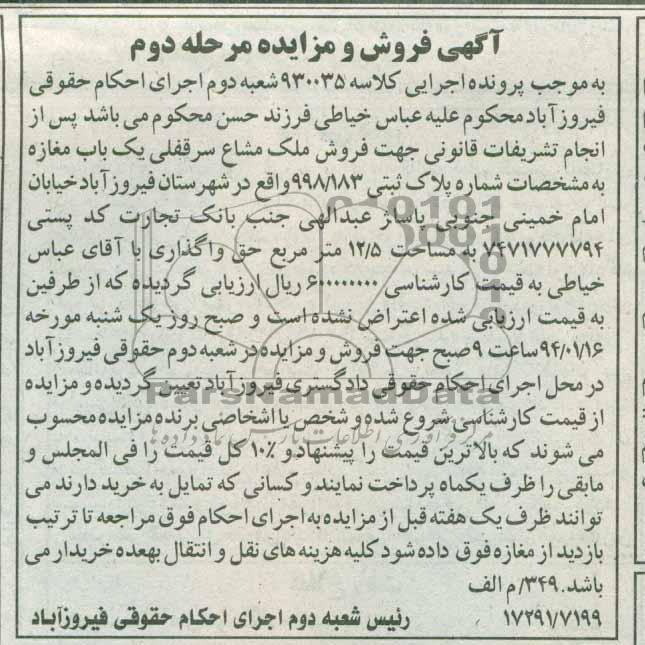 آگهی فروش و مزایده مرحله دوم
به موجب پرونده اجرایی کلاسه ۹۳۰۰۳۵ شعبه دوم اجرای احکام حقوقی
فیروزآباد محکوم علیه عباس خیاطی فرزند حسن محکوم می باشد پس از
انجام تشریفات قانونی جهت فروش ملک مشاع سرقفلی یک باب مغازه
به مشخصات شماره پلاک ثبتی ۹۹۸/۱۸۳ واقع در شهرستان فیروزآباد خیابان
امام خمینی جنوبی پاساژ عبدالهی جنب بانک تجارت کد پستی
۷۴۷۱۷۷۷۷۹۴ به مساحت ۱۲/۵ متر مربع حق واگذاری با آقای عباس
خیاطی به قیمت کارشناسی ۶۰۰۰۰۰۰۰۰ ریال ارزیابی گردیده که از طرفین
به قیمت ارزیابی شده اعتراض نشده است و صبح روز یک شنبه مورخه
۹۴/۰۱/۱۶ ساعت ۹ صبح جهت فروش و مزایده در شعبه دوم حقوقی فیروزآباد
در محل اجرای احکام حقوقی دادگستری فیروزآباد تعیین گردیده و مزایده
از قیمت کارشناسی شروع شده و شخص یا اشخاصی برنده مزایده محسوب
می شوند که بالاترین قیمت را پیشنهاد و ۱۰٪ کل قیمت را فی المجلس و
مابقی را ظرف یکماه پرداخت نمایند و کسانی که تمایل به خرید دارند می
توانند ظرف یک هفته قبل از مزایده به اجرای احکام فوق مراجعه تا ترتیب
بازدید از مغازه فوق داده شود کلیه هزینه های نقل و انتقال بهعده خریدار می
باشد. ۳۴۹/م الف
۱۷۲۹۱/۷۱۹۹ رئیس شعبه دوم اجرای احکام حقوقی فیروزآباد
ParsNamadData